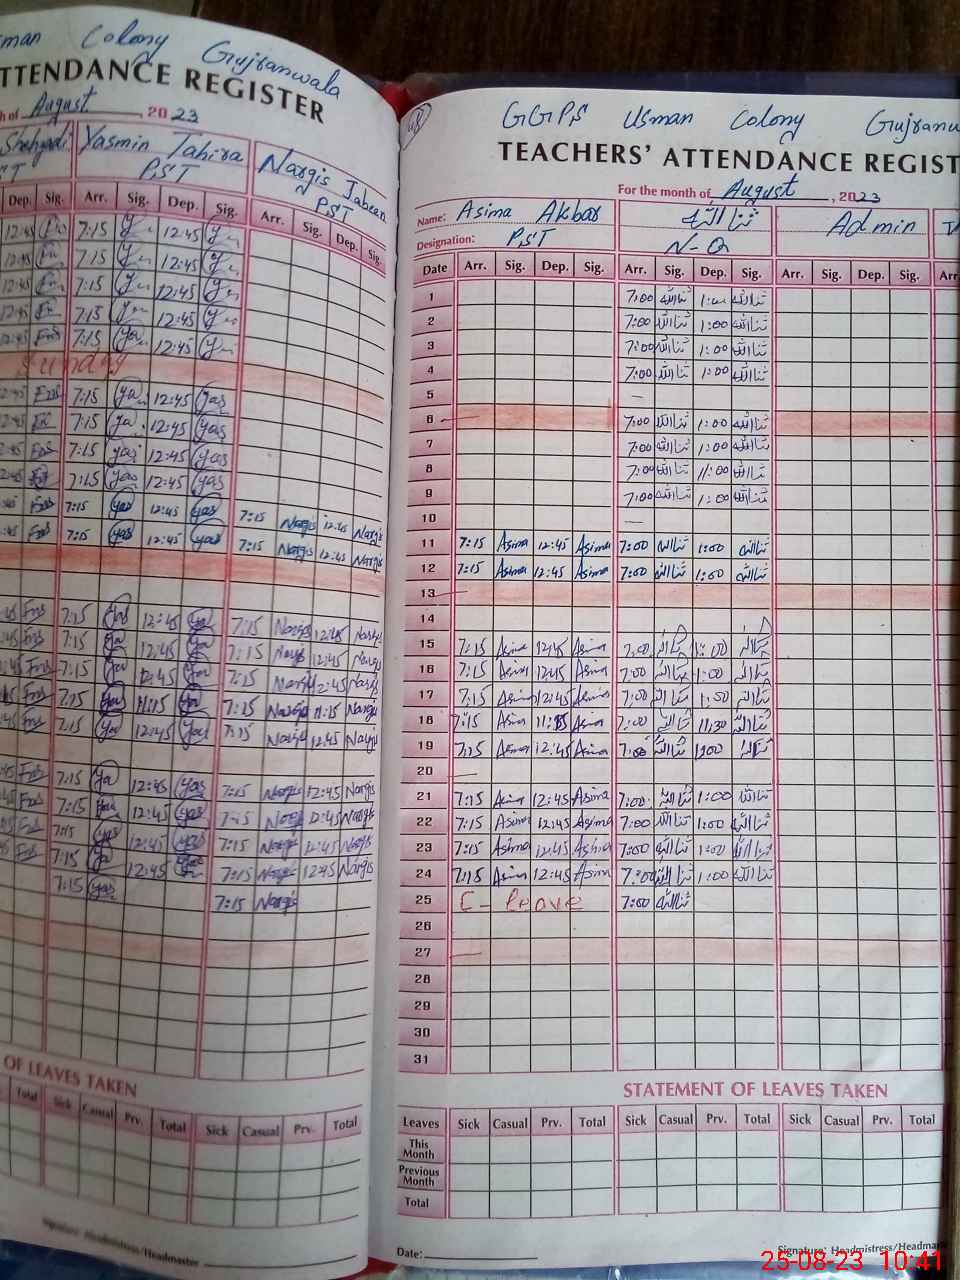 Colony Gujranwala
TTENDANCE REGISTER
h of August, 2023
Yasmin Tahira
PST
Nargis Jabeen
PST
Dep. Sig. Arr. Sig. Dep. Sig. Arr. Sig. Dep. Sig.
7:15 12:45
7:15 12:45
7:15 12:45
7:15 12:45
7:15 12:45
Sunday
7:15 12:45 Yas
7:15 12:45 Yas
7:15 12:45 Yas
7:15 Yas 12:45 Yas
7:15 Yas 12:45 Yas 7:15 Nargis 12:45 Nargis
7:15 Yas 12:45 Yas 7:15 Nargis 12:45 Nargis
7:15 12:45 7:15 Nargis 12:45
7:15 12:45 7:15 12:45 Nargis
7:15 12:45 7:15 Nargis 12:45 Nargis
7:15 11:15 7:15 Nargis 11:15 Nargis
7:15 12:45 7:15 Nargis 12:45 Nargis
7:15 12:45 Yas 7:15 Nargis 12:45 Nargis
7:15 12:45 Yas 7:15 Nargis 12:45 Nargis
7:15 Yas 12:45 Yas 7:15 Nargis 12:45 Nargis
7:15 12:45 7:15 Nargis 12:45 Nargis
7:15 Yas 7:15 Nargis
OF LEAVES TAKEN
Total Sick Casual Prv. Total Sick Casual Prv. Total
Signature: Headmistress/Headmaster
GGPS Usman Colony Gujranw
TEACHERS' ATTENDANCE REGIST
For the month of August, 2023
Name: Asima Akbar ثنا اللہ Admin
Designation: PST N-Q
Date Arr. Sig. Dep. Sig. Arr. Sig. Dep. Sig. Arr. Sig. Dep. Sig. Arr
1 7:00 ثنااللہ 1:00 ثنااللہ
2 7:00 ثنااللہ 1:00 ثنااللہ
3 7:00 ثنااللہ 1:00 ثنااللہ
4 7:00 ثنااللہ 1:00 ثنااللہ
5
6 7:00 ثنااللہ 1:00 ثنااللہ
7 7:00 ثنااللہ 1:00 ثنااللہ
8 7:00 ثنااللہ 1:00 ثنااللہ
9 7:00 ثنااللہ 1:00 ثنااللہ
10
11 7:15 Asima 12:45 Asima 7:00 ثنااللہ 1:00 ثنااللہ
12 7:15 Asima 12:45 Asima 7:00 ثنااللہ 1:00 ثنااللہ
13
14
15 7:15 Asima 12:45 Asima 7:00 ثنااللہ 1:00 ثنااللہ
16 7:15 Asima 12:45 Asima 7:00 ثنااللہ 1:00 ثنااللہ
17 7:15 Asima 12:45 Asima 7:00 ثنااللہ 1:00 ثنااللہ
18 7:15 Asima 11:15 Asima 7:00 ثنااللہ 11:30 ثنااللہ
19 7:15 Asima 12:45 Asima 7:00 ثنااللہ 1:00
20
21 7:15 Asima 12:45 Asima 7:00 ثنااللہ 1:00 ثنااللہ
22 7:15 Asima 12:45 Asima 7:00 ثنااللہ 1:00 ثنااللہ
23 7:15 Asima 12:45 Asima 7:00 ثنااللہ 1:00 ثنااللہ
24 7:15 Asima 12:45 Asima 7:00 ثنااللہ 1:00 ثنااللہ
25 C-leave 7:00 ثنااللہ
26
27
28
29
30
31
STATEMENT OF LEAVES TAKEN
Leaves Sick Casual Prv. Total Sick Casual Prv. Total Sick Casual Prv. Total
This Month
Previous Month
Total
Date:
Signature: Headmistress/Headma
25-08-23 10:41